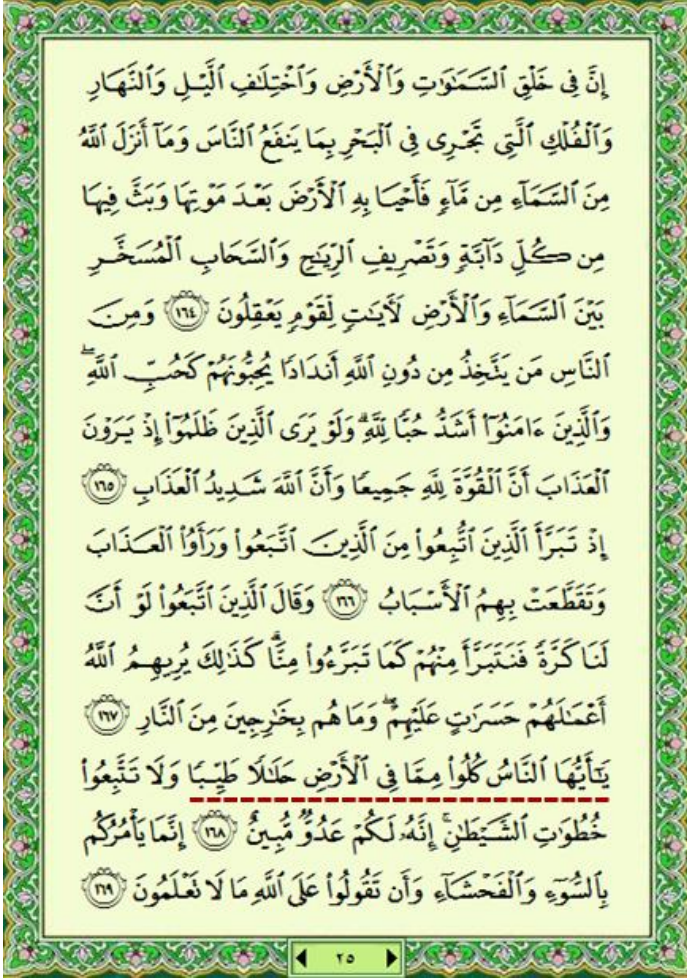 إِنَّ فِي خَلْقِ ٱلسَّمَٰوَٰتِ وَٱلْأَرْضِ وَٱخْتِلَٰفِ ٱلَّيْلِ وَٱلنَّهَارِ
وَٱلْفُلْكِ ٱلَّتِي تَجْرِي فِي ٱلْبَحْرِ بِمَا يَنفَعُ ٱلنَّاسَ وَمَآ أَنزَلَ ٱللَّهُ
مِنَ ٱلسَّمَآءِ مِن مَّآءٍ فَأَحْيَا بِهِ ٱلْأَرْضَ بَعْدَ مَوْتِهَا وَبَثَّ فِيهَا
مِن كُلِّ دَآبَّةٍ وَتَصْرِيفِ ٱلرِّيَٰحِ وَٱلسَّحَابِ ٱلْمُسَخَّرِ
بَيْنَ ٱلسَّمَآءِ وَٱلْأَرْضِ لَأٓيَٰتٍ لِّقَوْمٍ يَعْقِلُونَ ١٦٤ وَمِنَ
ٱلنَّاسِ مَن يَتَّخِذُ مِن دُونِ ٱللَّهِ أَندَادًا يُحِبُّونَهُمْ كَحُبِّ ٱللَّهِۖ
وَٱلَّذِينَ ءَامَنُوٓا۟ أَشَدُّ حُبًّا لِّلَّهِۗ وَلَوْ يَرَى ٱلَّذِينَ ظَلَمُوٓا۟ إِذْ يَرَوْنَ
ٱلْعَذَابَ أَنَّ ٱلْقُوَّةَ لِلَّهِ جَمِيعًا وَأَنَّ ٱللَّهَ شَدِيدُ ٱلْعَذَابِ ١٦٥
إِذْ تَبَرَّأَ ٱلَّذِينَ ٱتُّبِعُوا۟ مِنَ ٱلَّذِينَ ٱتَّبَعُوا۟ وَرَأَوُا۟ ٱلْعَذَابَ
وَتَقَطَّعَتْ بِهِمُ ٱلْأَسْبَابُ ١٦٦ وَقَالَ ٱلَّذِينَ ٱتَّبَعُوا۟ لَوْ أَنَّ
لَنَا كَرَّةً فَنَتَبَرَّأَ مِنْهُمْ كَمَا تَبَرَّءُوا۟ مِنَّاۗ كَذَٰلِكَ يُرِيهِمُ ٱللَّهُ
أَعْمَٰلَهُمْ حَسَرَٰتٍ عَلَيْهِمْۖ وَمَا هُم بِخَٰرِجِينَ مِنَ ٱلنَّارِ ١٦٧
يَٰٓأَيُّهَا ٱلنَّاسُ كُلُوا۟ مِمَّا فِي ٱلْأَرْضِ حَلَٰلًا طَيِّبًا وَلَا تَتَّبِعُوا۟
خُطُوَٰتِ ٱلشَّيْطَٰنِۚ إِنَّهُۥ لَكُمْ عَدُوٌّ مُّبِينٌ ١٦٨ إِنَّمَا يَأْمُرُكُم
بِٱلسُّوٓءِ وَٱلْفَحْشَآءِ وَأَن تَقُولُوا۟ عَلَى ٱللَّهِ مَا لَا تَعْلَمُونَ ١٦٩
٢٥